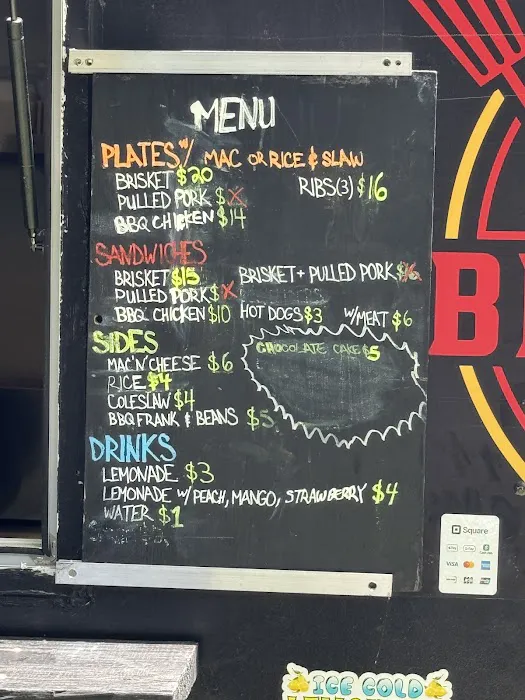 MENU
PLATES w/ MAC OR RICE & SLAW
BRISKET $20
RIBS(3) $16
PULLED PORK $X
BBQ CHICKEN $14
SANDWICHES
BRISKET $15
BRISKET + PULLED PORK $
PULLED PORK $X
BBQ CHICKEN $10
HOT DOGS $3 W/MEAT $6
SIDES
CHOCOLATE CAKE $5
MAC'N'CHEESE $6
RICE $4
COLESLAW $4
BBQ FRANK & BEANS $5
DRINKS
LEMONADE $3
LEMONADE W/ PEACH, MANGO, STRAWBERRY $4
WATER $1
B
Square
VISA
ICE COLD